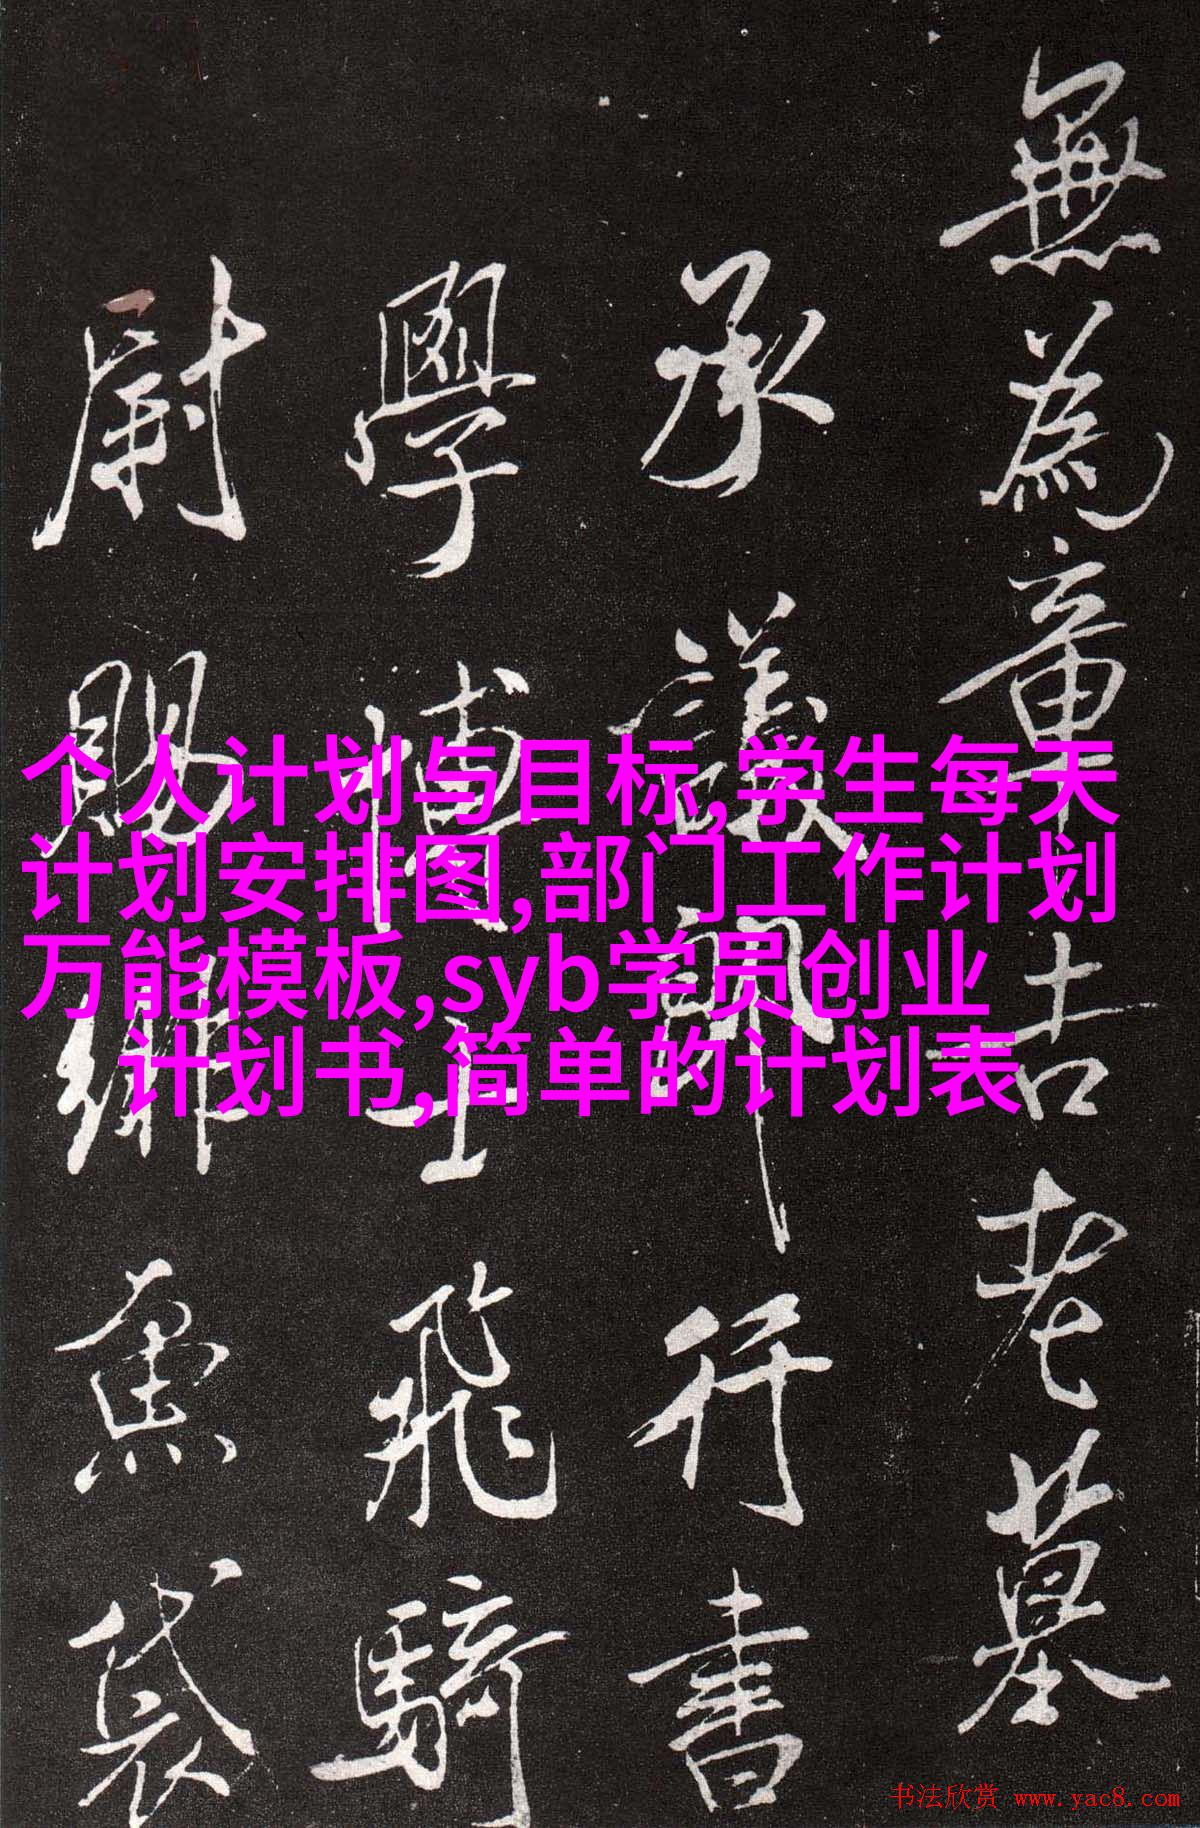 無為章吉老墓
承議郎行書
學博士飛騎
尉賜緋魚袋
个人计划与目标,学生每天
计划安排图,部门工作计划
万能模板,syb学员创业
计划书,简单的计划表
书法欣赏 www.yac8.com